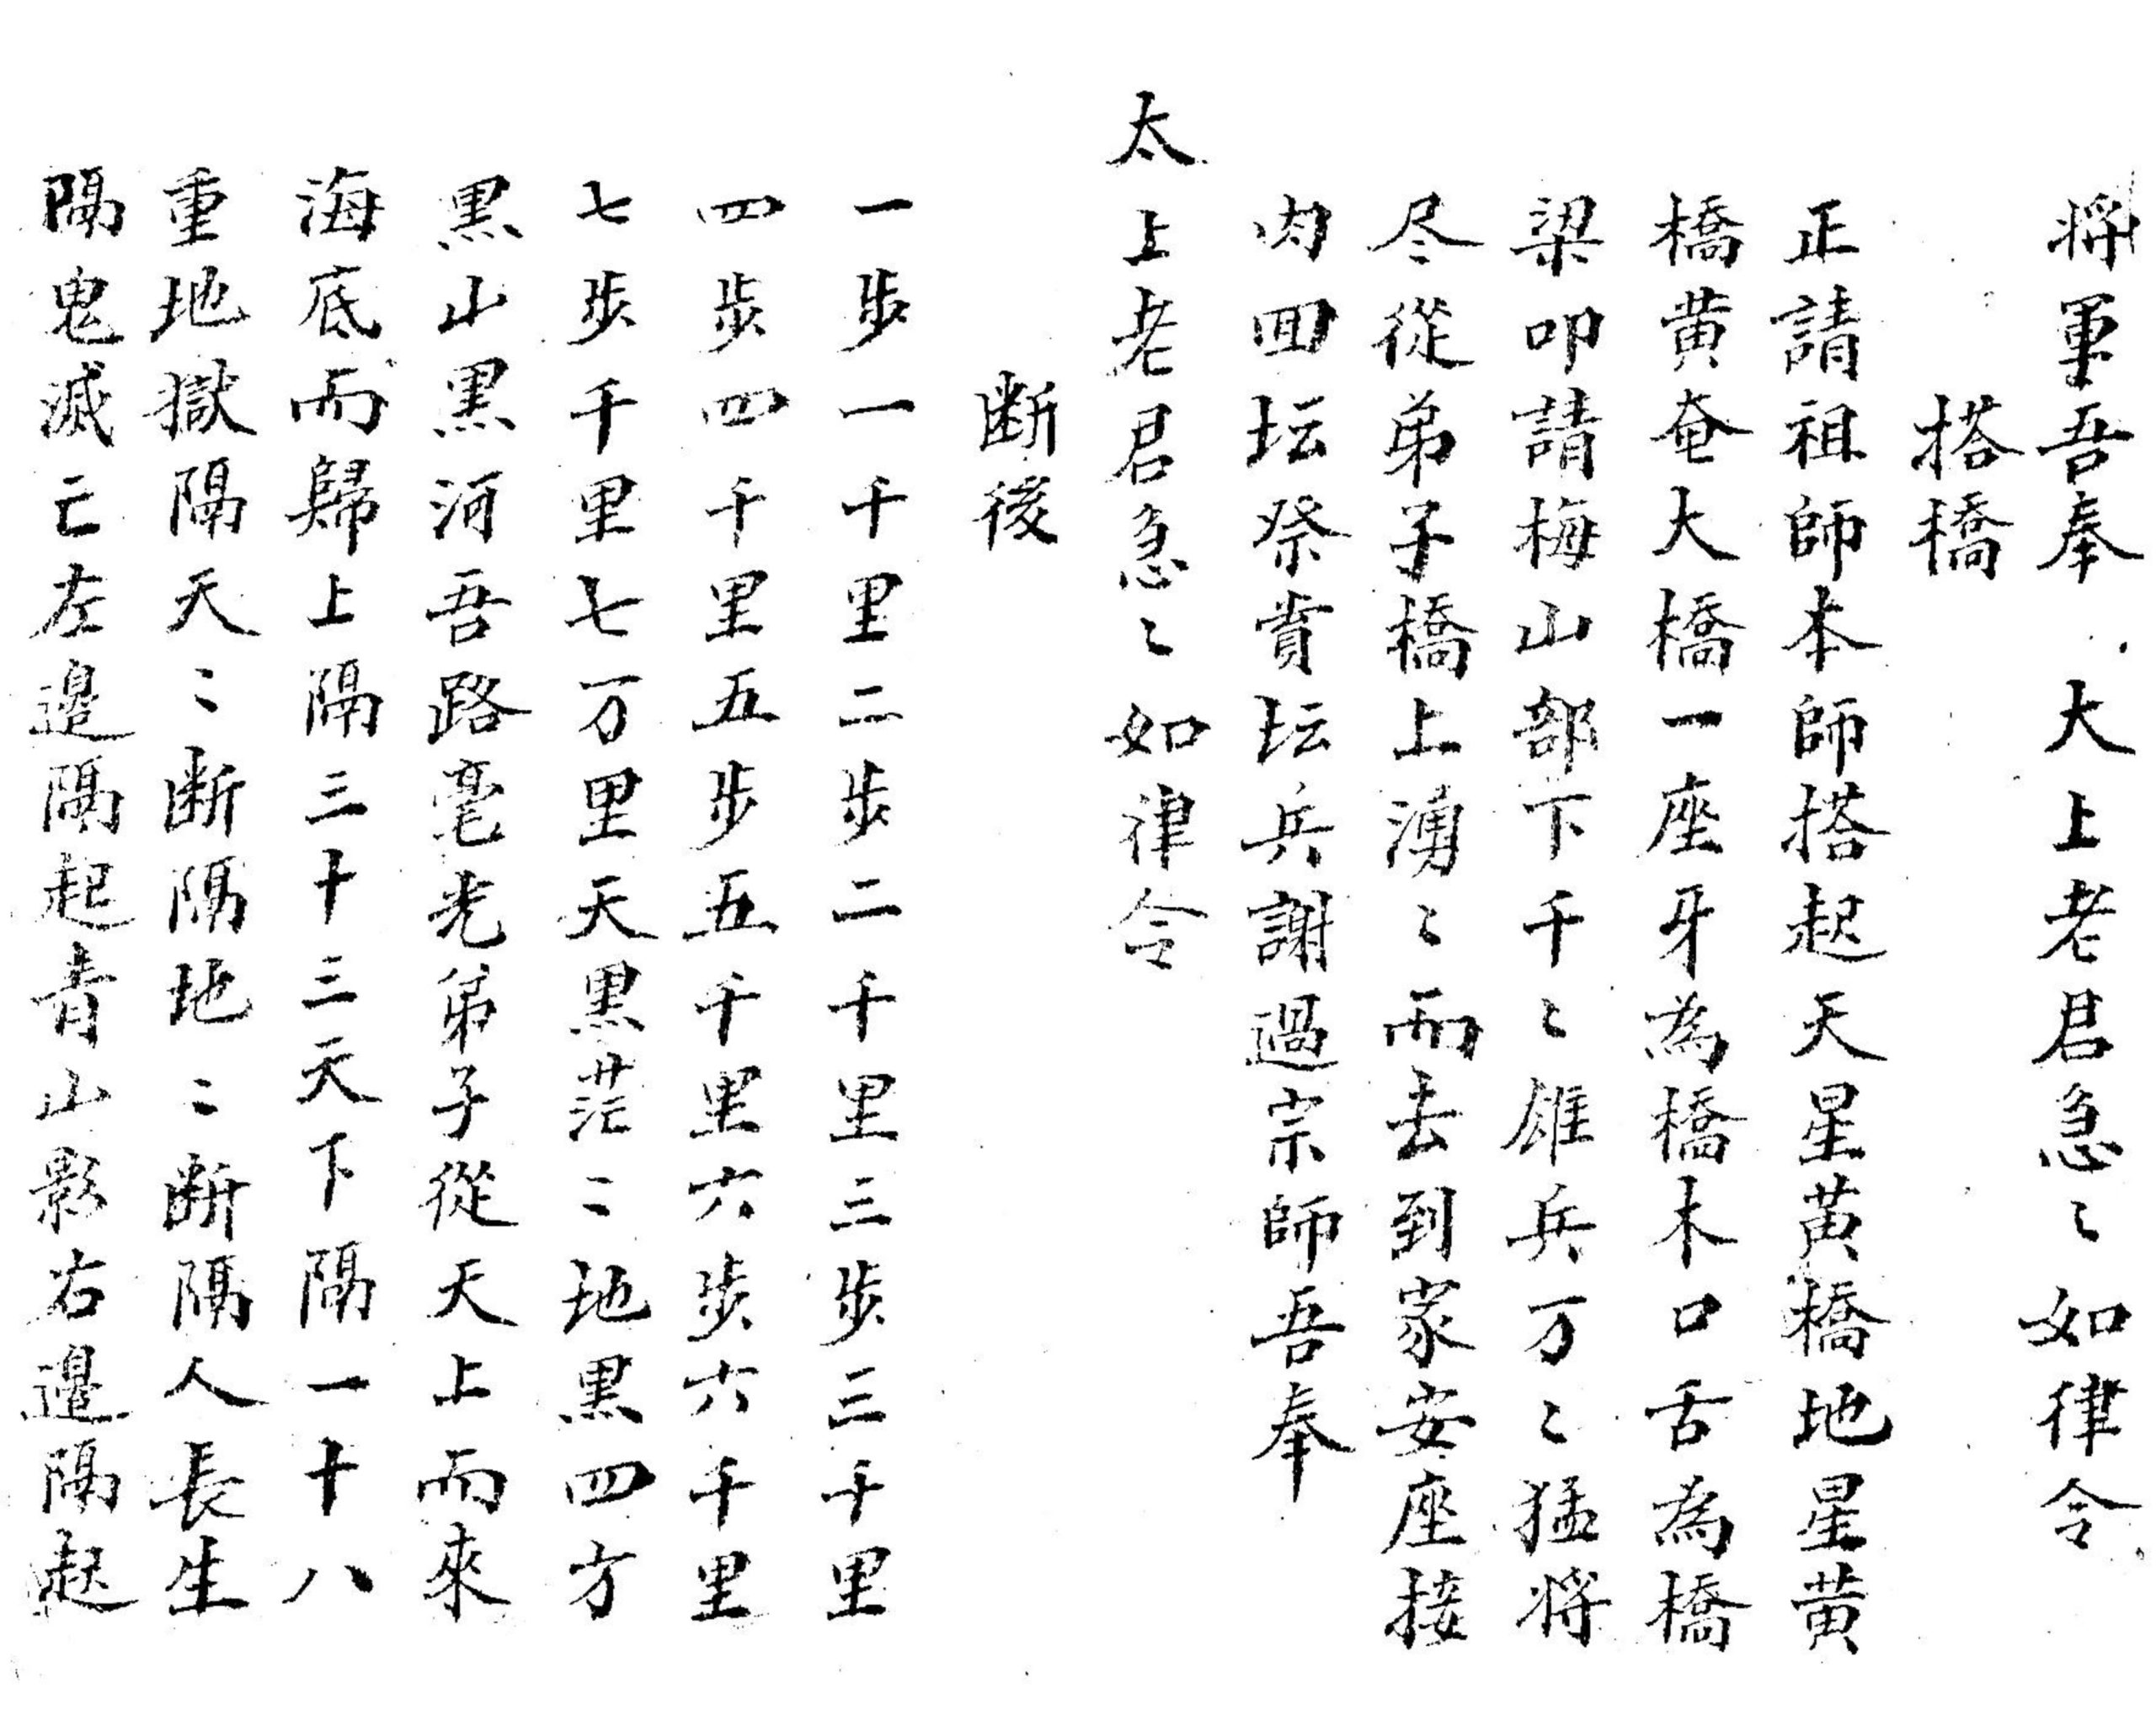 将軍吾奉 大上老君急〻如律令
搭橋
正請祖師本師搭起天星黄橋地星黄
橋黄奄大橋一座牙為橋木口舌為橋
梁叩請梅山部下千〻雄兵万〻猛将
尽從弟子橋上湧〻而去到家安座接
内囬坛祭賞坛兵謝過宗師吾奉
太上老君急〻如律令
断後
一步一千里二步二千里三步三千里
四步四千里五步五千里六步六千里
七步千里七万里天黒茫〻地黒四方
黒山黒河吾路毫光弟子從天上而來
海底而歸上隔三十三天下隔一十八
重地獄隔天〻断隔地〻断隔人長生
隔鬼滅亡左邉隔起青山影右邉隔起